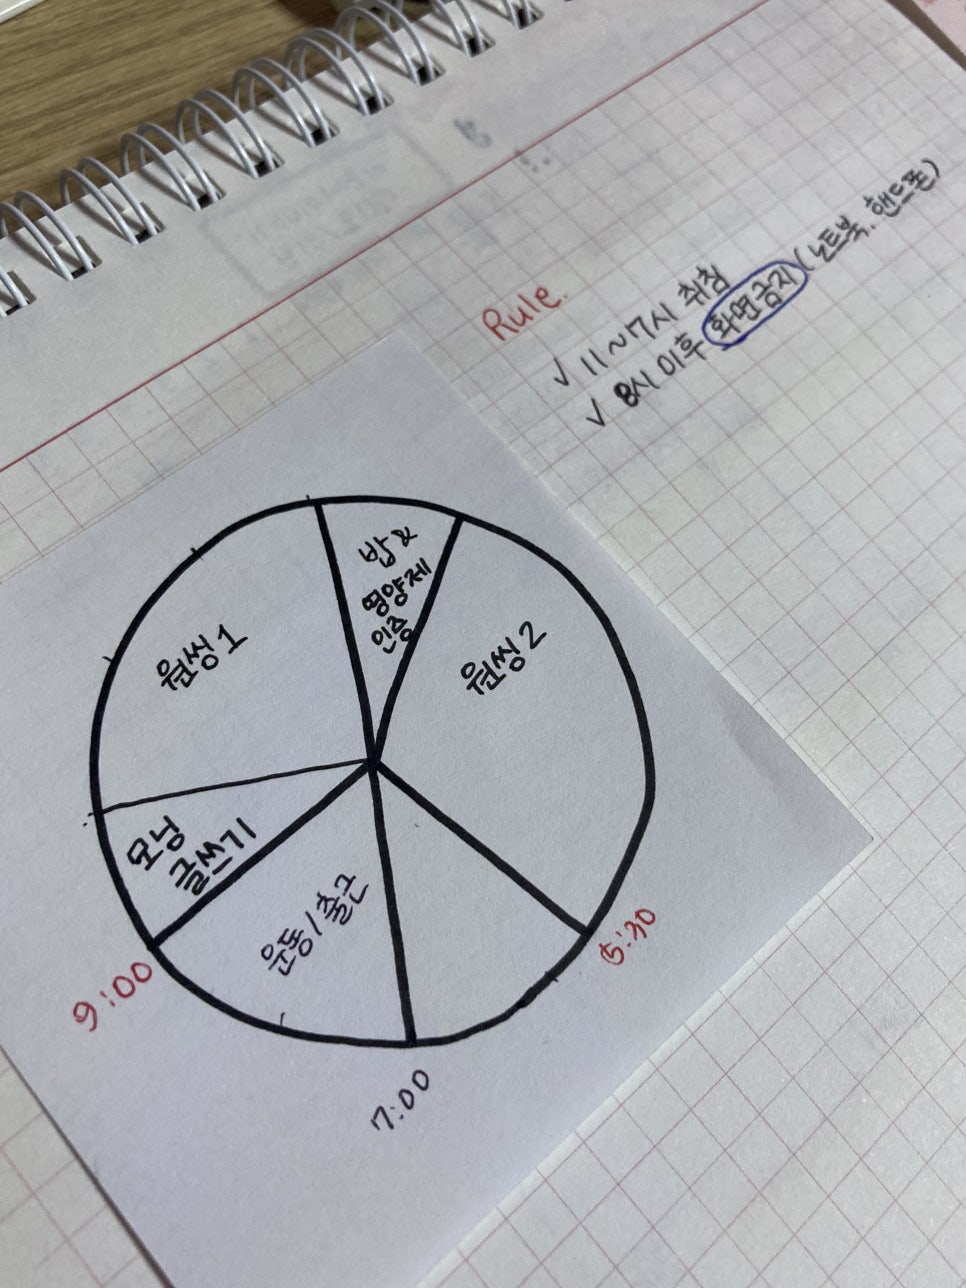 Rule.
√ 11~7시 취침
√ 8시 이후 화면금지 (노트북, 핸드폰)
밥 &
영양제
인증
원씽 1
원씽 2
모닝
글쓰기
운동/출근
5:30
9:00
7:00